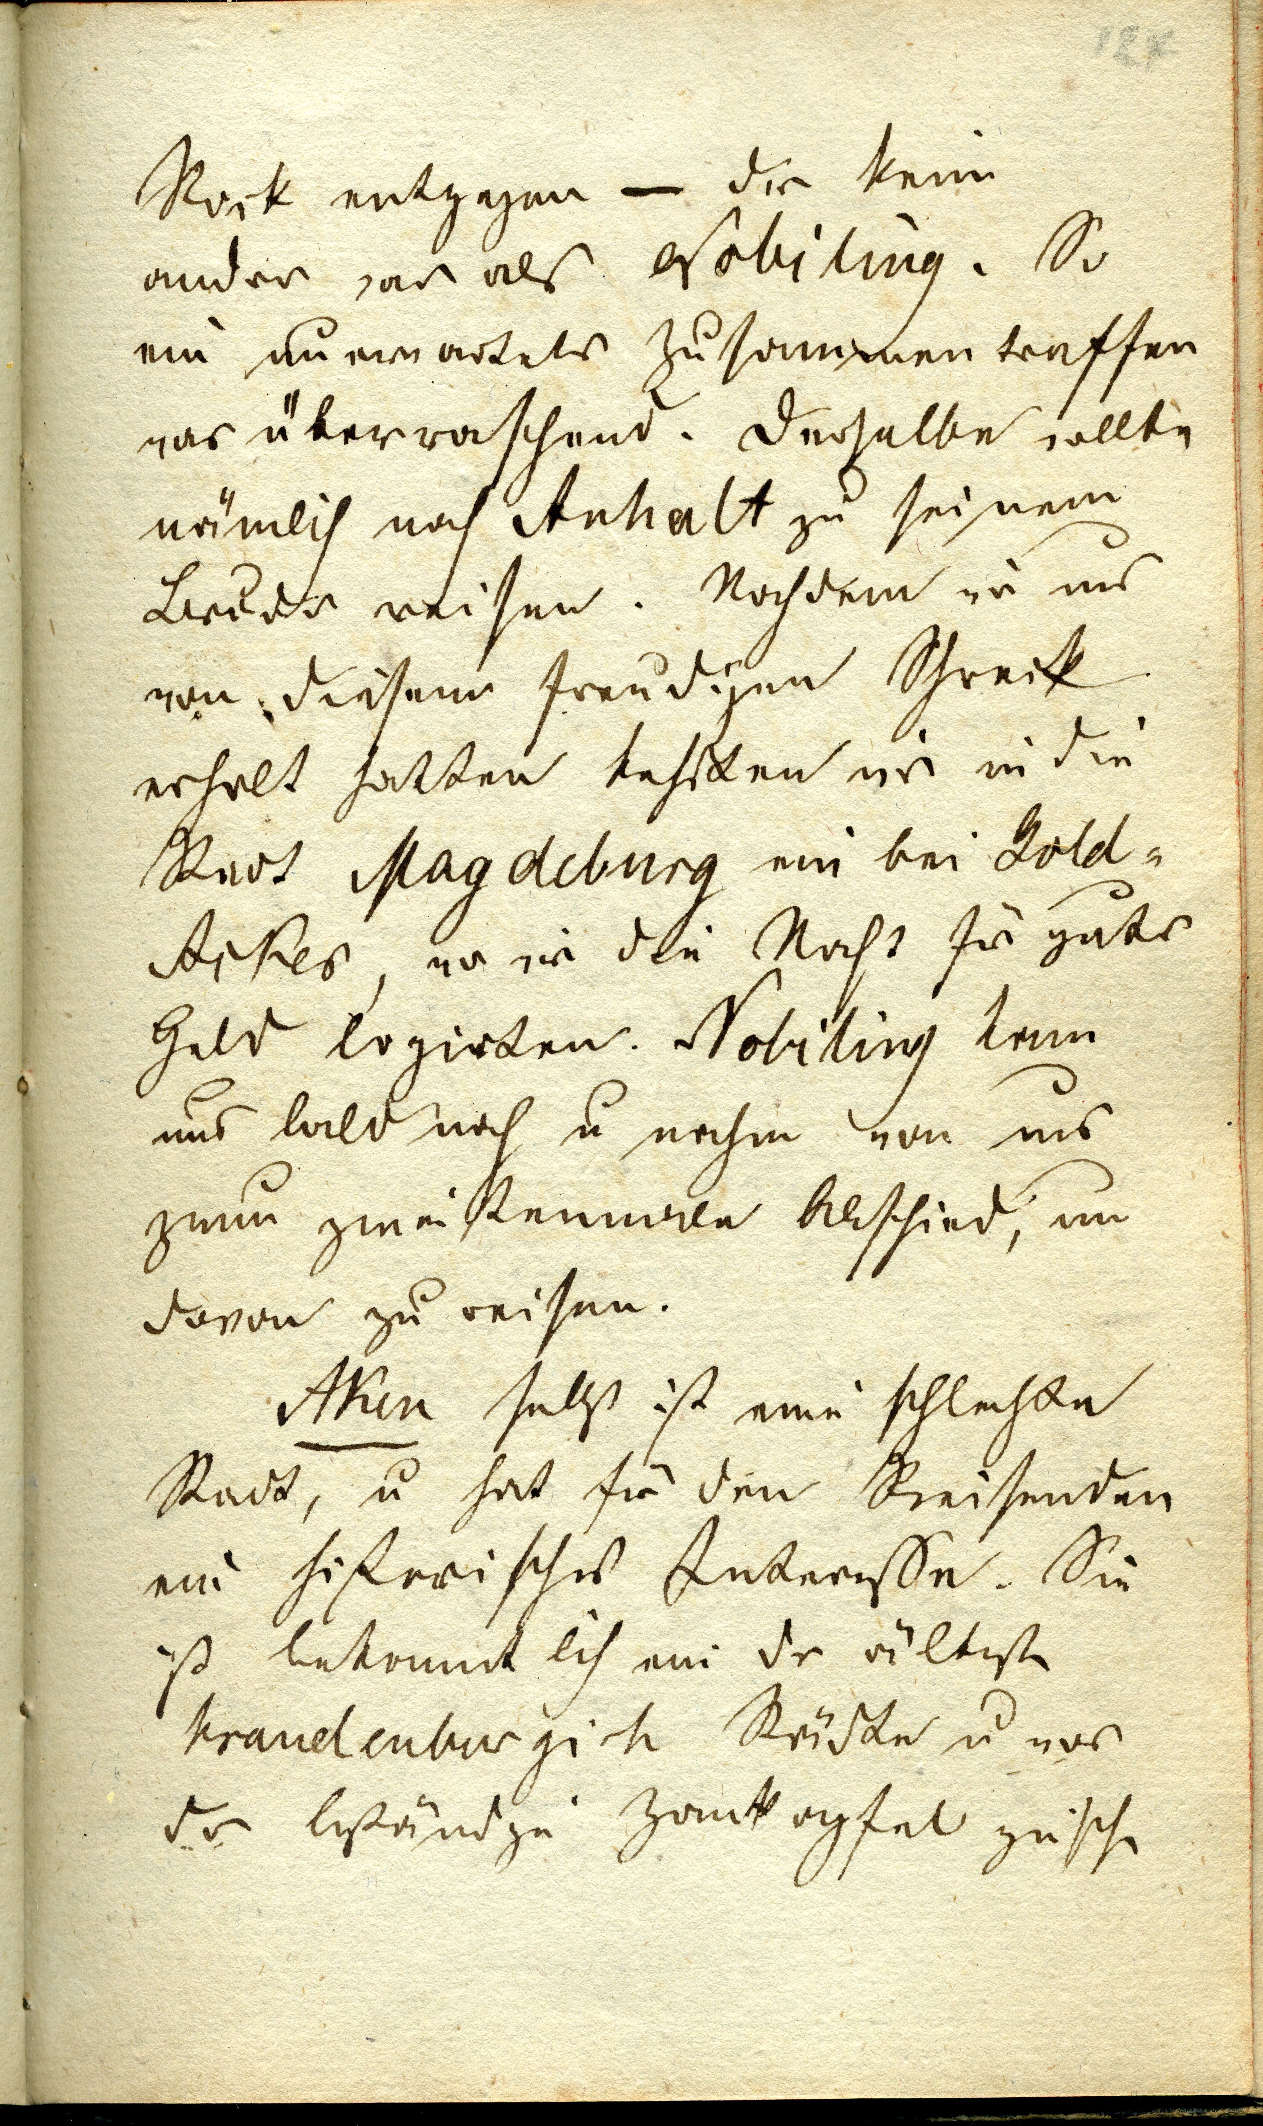 127
Rock entgegen — der kein
ander war als Nobiling. So
ein unerwartets Zusammentreffen
war überraschend. Derselbe wollte
nämlich nach Anhalt zu seinem
Bruder reisen. Nachdem wir uns
von diesem freudigen Schreck
erholt hatten kehrten wir in die
Stadt Magdeburg ein bei Gold-
Acker, wo wir die Nacht für gutes
Geld logirten. Nobiling kam
uns bald nach u nahm von uns
zum zweitenmale Abschied, um
davon zu reisen.
Aken selbst ist eine schlechte
Stadt, u hat für den Reisenden
ein historisches Interesse. Sie
ist bekanntlich ein der ältest
brandenburgisch Städte u war
der beständge Zankapfel zwisch